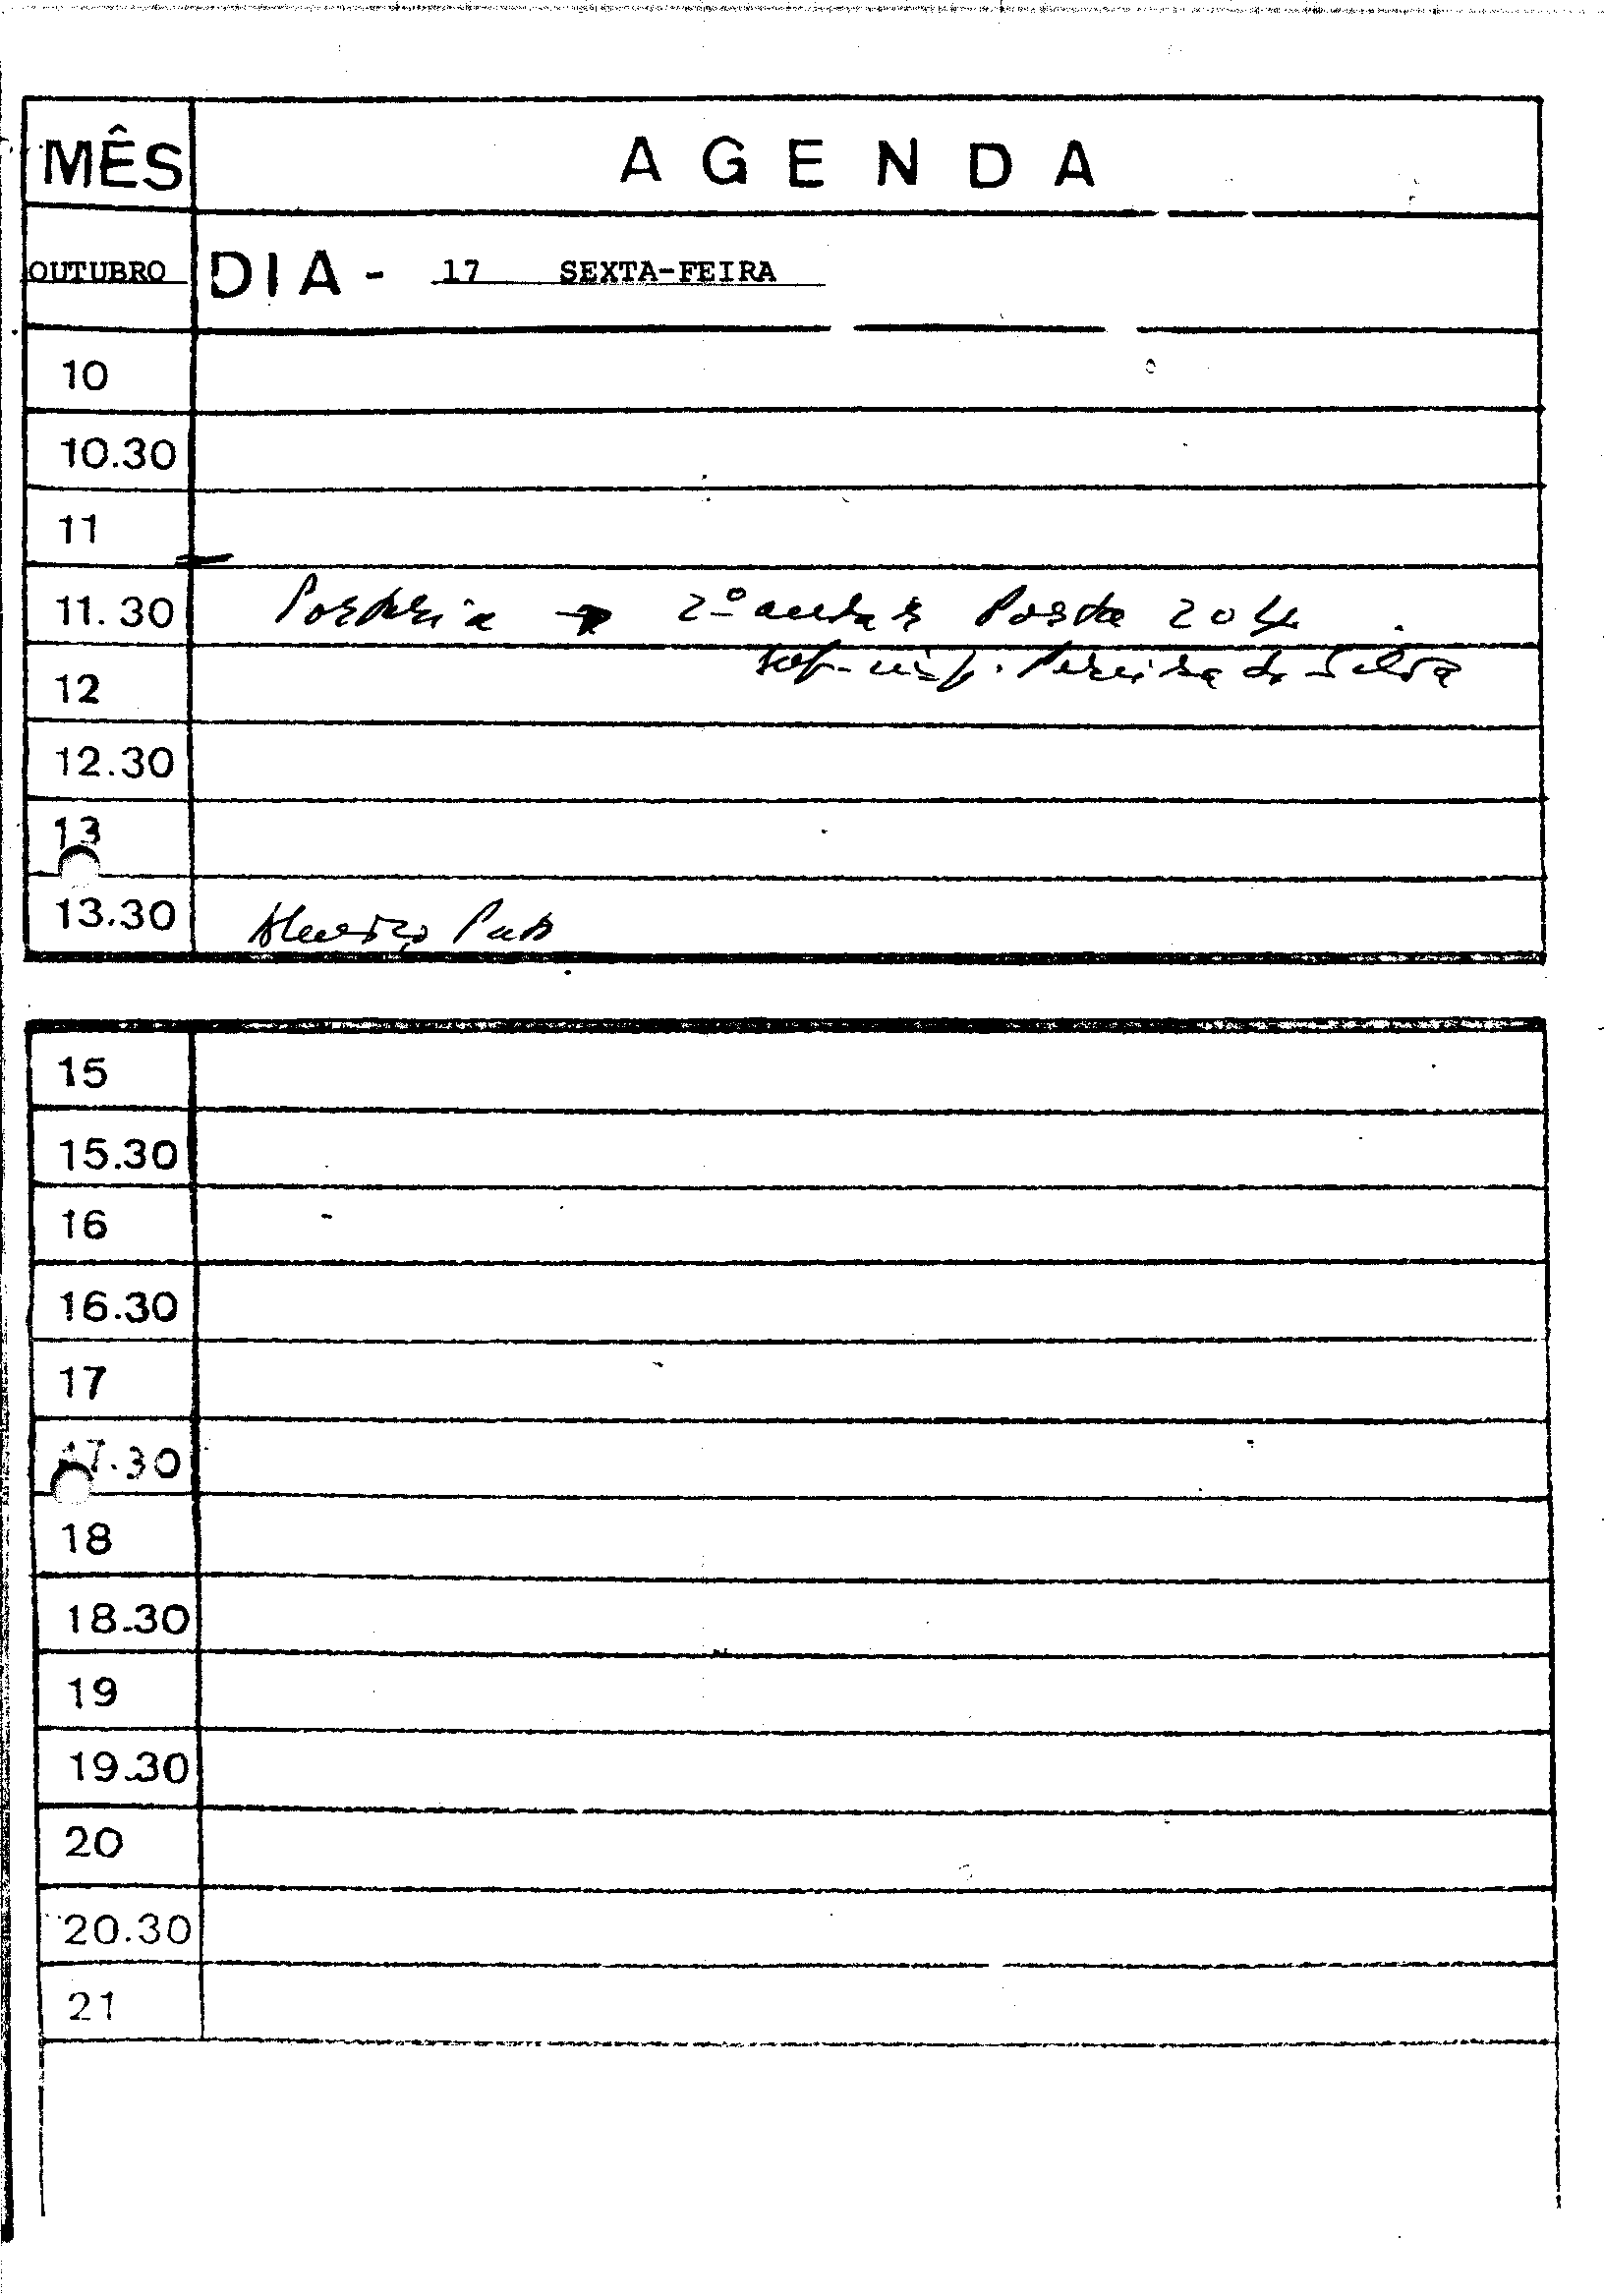 MÊS A G E N D A
OUTUBRO DIA - 17 SEXTA-FEIRA
10
10.30
11
11.30 Portaria → 2º andar Porta 204
Pereira da Silva
12
12.30
13
13.30 Almoço
15
15.30
16
16.30
17
17.30
18
18.30
19
19.30
20
20.30
21